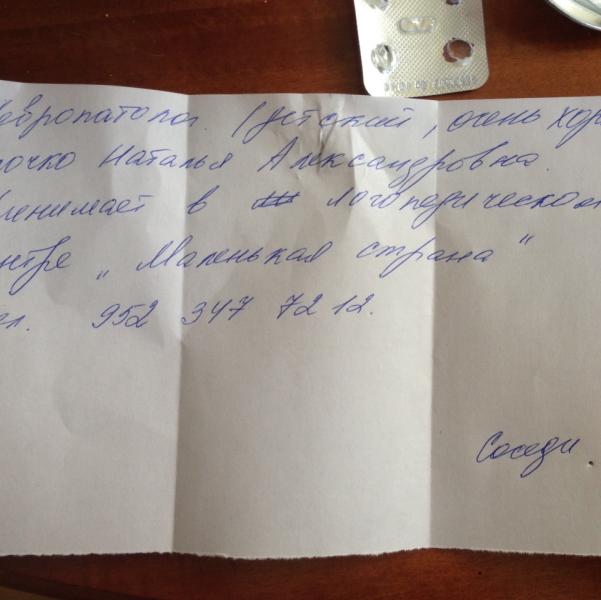 европатолог (детский, очень хор
рочко Наталья Александровна.
ринимает в логопедическом
нтре „Маленькая страна"
ел. 952 347 72 12.
Соседи.